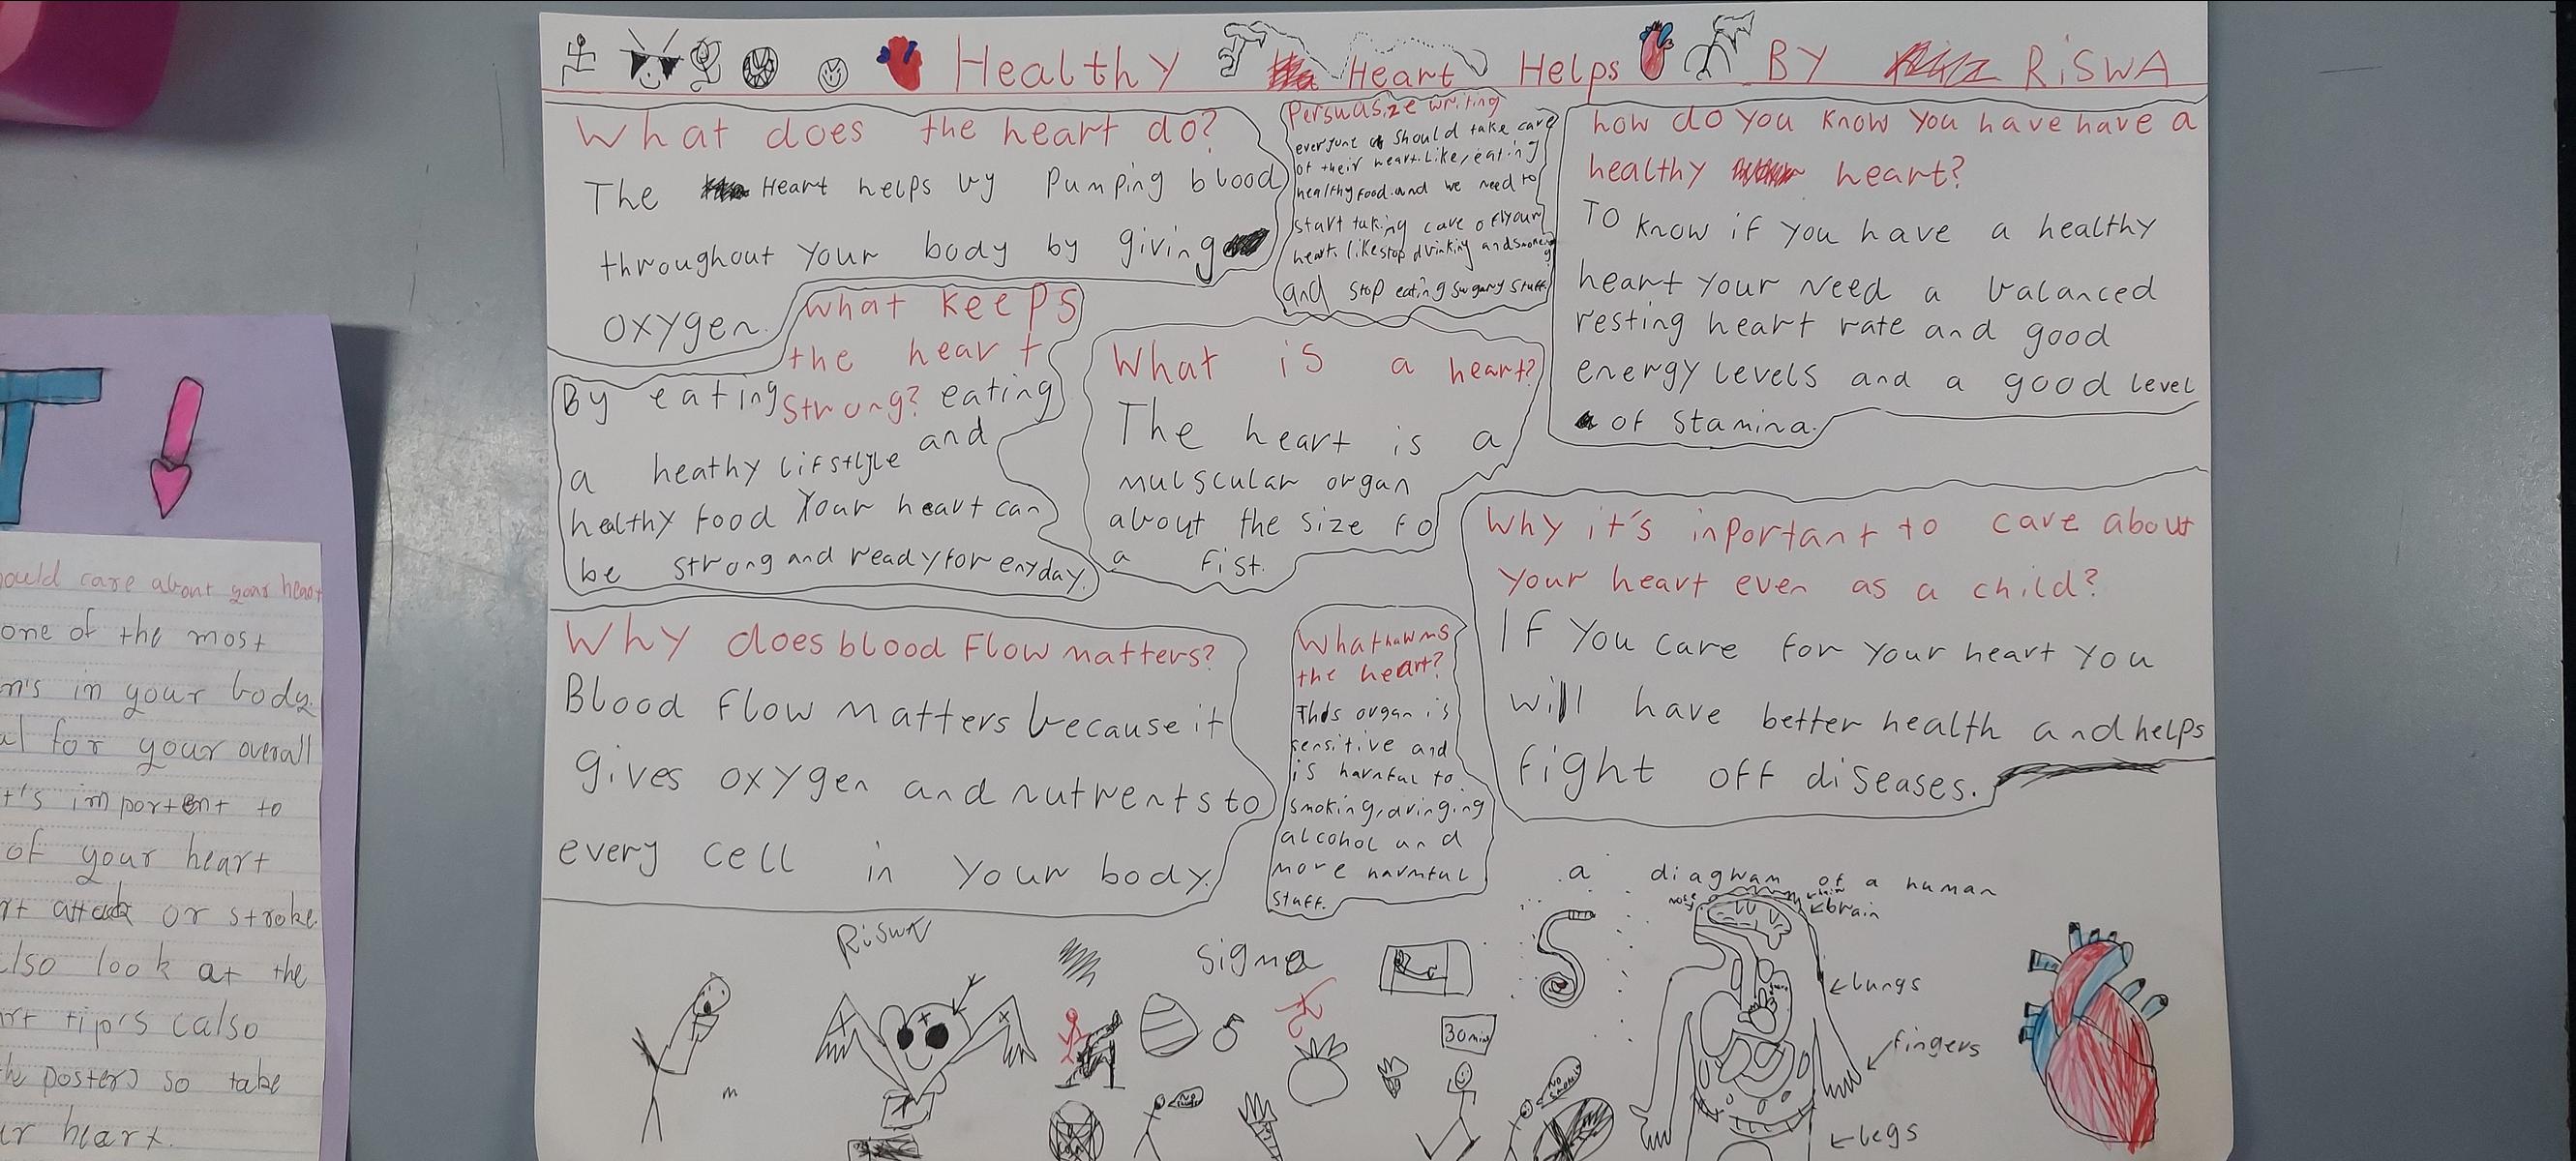 Healthy Heart Helps BY RiSWA
What does the heart do?
The Heart helps by Pumping blood
throughout your body by giving
oxygen.
Persuasize writing
everyone should take care
of their heart. Like, eating
healthy food. and we need to
start taking care of your
heart. like stop drinking and smoking
and stop eating sugary stuff
how do you know you have have a
healthy heart?
To know if you have a healthy
heart your need a balanced
resting heart rate and good
energy levels and a good level
of stamina.
what keeps
the heart
strong?
By eating eating
a heathy lifstlyle and
healthy food your heart can
be strong and ready for enyday.
What is a heart?
The heart is a
mulscular organ
about the size fo
a fist.
Why it's inportant to care about
your heart even as a child?
If you care for your heart you
will have better health and helps
fight off diseases.
Why does blood flow matters?
Blood flow matters because it
gives oxygen and nutrents to
every cell in your body.
What harms
the heart?
This organ is
sensitive and
is harmful to
smoking, dringing
alcohol and
more harmful
stuff.
a diagram of a human
nose
brain
lungs
fingers
legs
Riswa
sigma
30 min
NO
NO smoking
T
ould care about your heart
one of the most
m's in your body.
al for your overall
t's importent to
of your heart
rt attack or stroke.
also look at the
art tip's (also
the posters) so take
ur heart.